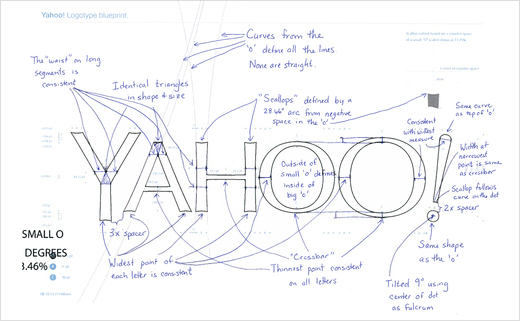 Yahoo! Logotype blueprint.
Curves from the
'o' define all the lines.
None are straight.
The "waist" on long
segments is
consistent
Identical triangles
in shape & size
"Scallops" defined by a
arc from negative
space in the 'o'
Consistent
with widest
measure
Same curve
as top of 'o'
Width at
narrowest
point is same
as crossbar
Scallop follows
curve on the dot
2x spacer
YAHOO!
Outside of
small 'o' defines
inside of
big 'o'
3x spacer
SMALL O
DEGREES
3.46%
Widest point of
each letter is consistent
"Crossbar"
Thinnest point consistent
on all letters
Same shape
as the 'o'
Tilted 9° using
center of dot
as fulcrum